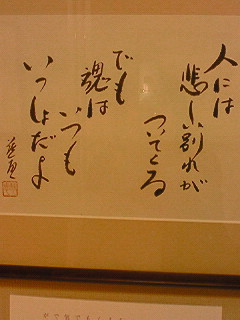 人には
悲しい別れが
ついてくる
でも
魂は
いつも
いっしょだよ